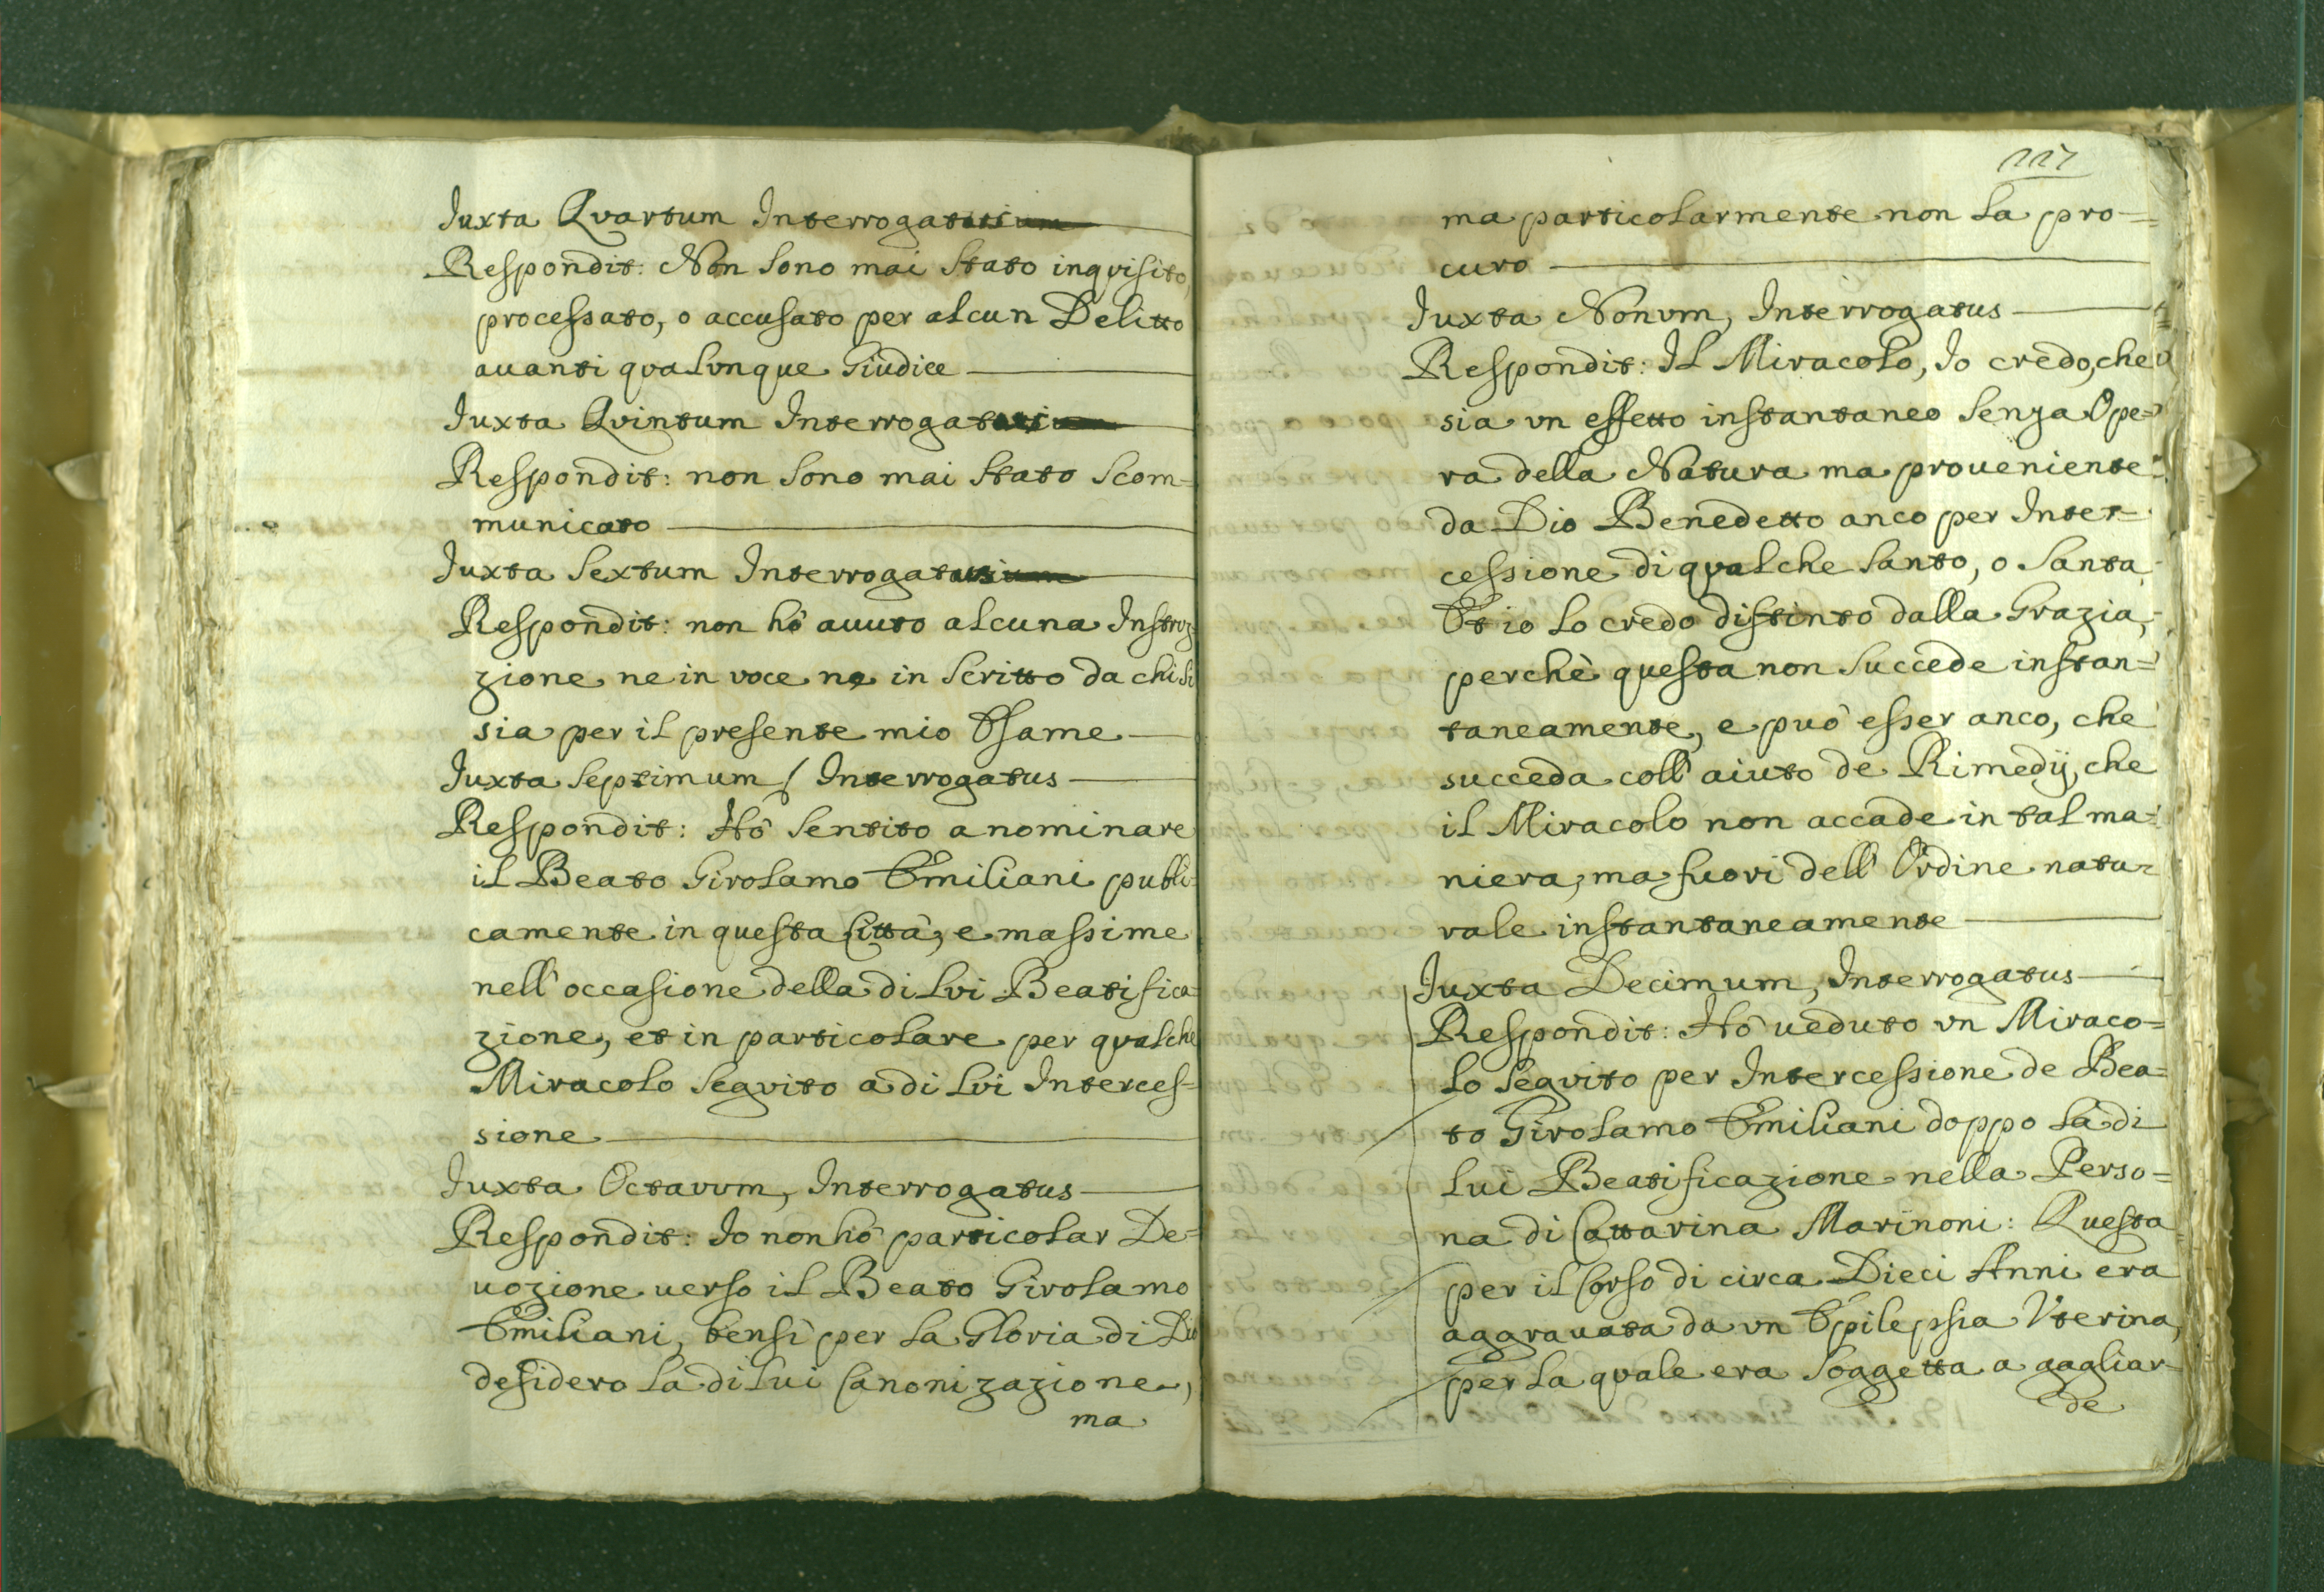 Iuxta Qvartum Interrogatus
Respondit: Non sono mai stato inqvisito,
processato, o accusato per alcun Delitto
auanti qvalvnque Giudice
Iuxta Qvintum Interrogatus
Respondit: non sono mai stato scom-
municato
Iuxta Sextum Interrogatus
Respondit: non hò auuto alcuna Instruz-
zione ne in voce ne in scritto da chi si
sia per il presente mio Esame
Iuxta Septimum Interrogatus
Respondit: Hò sentito a nominare
il Beato Girolamo Emiliani publi-
camente in questa Città, e massime
nell'occasione della di lvi Beatifica-
zione, et in particolare per qvalche
Miracolo segvito a di lvi Interces-
sione
Iuxta Octavvm, Interrogatus
Respondit: Io non hò particolar De-
uozione uerso il Beato Girolamo
Emiliani, bensì per la Gloria di Dio
desidero la di lui Canonizazione,
ma
227
ma particolarmente non la pro=
curo
Iuxta Nonvm, Interrogatus
Respondit: Il Miracolo, Io credo, che
sia vn effetto instantaneo senza Ope=
ra della Natura ma proueniente
da Dio Benedetto anco per Inter=
cessione di qvalche Santo, o Santa
Et io lo credo distinto dalla Grazia,
perchè questa non succede instan=
taneamente, e può esser anco, che
succeda coll'aiuto de Rimedij, che
il Miracolo non accade in tal ma=
niera, ma fuori dell'Ordine natu=
rale instantaneamente
Iuxta Decimum, Interrogatus
Respondit: Hò ueduto vn Miraco=
lo segvito per Intercessione de Bea=
to Girolamo Emiliani doppo la di
lui Beatificazione nella Perso=
na di Cattarina Marinoni: Questa
per il Corso di circa Dieci Anni era
aggrauata da vn Epilepsia Vterina,
per la qvale era soggetta a gagliar-
de